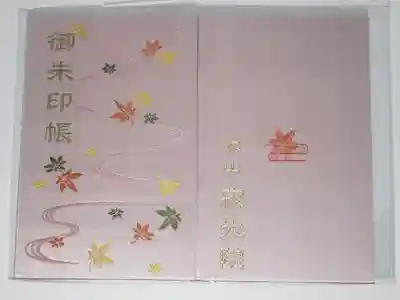 御朱印帳
山 光院